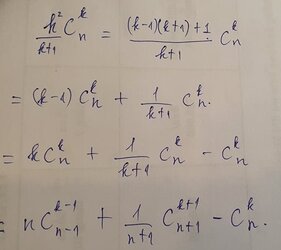 k²/(k+1) Cₙᵏ = ((k-1)(k+1)+1)/(k+1) Cₙᵏ
= (k-1) Cₙᵏ + 1/(k+1) Cₙᵏ.
= k Cₙᵏ + 1/(k+1) Cₙᵏ - Cₙᵏ
= n Cₙ₋₁ᵏ⁻¹ + 1/(n+1) Cₙ₊₁ᵏ⁺¹ - Cₙᵏ.